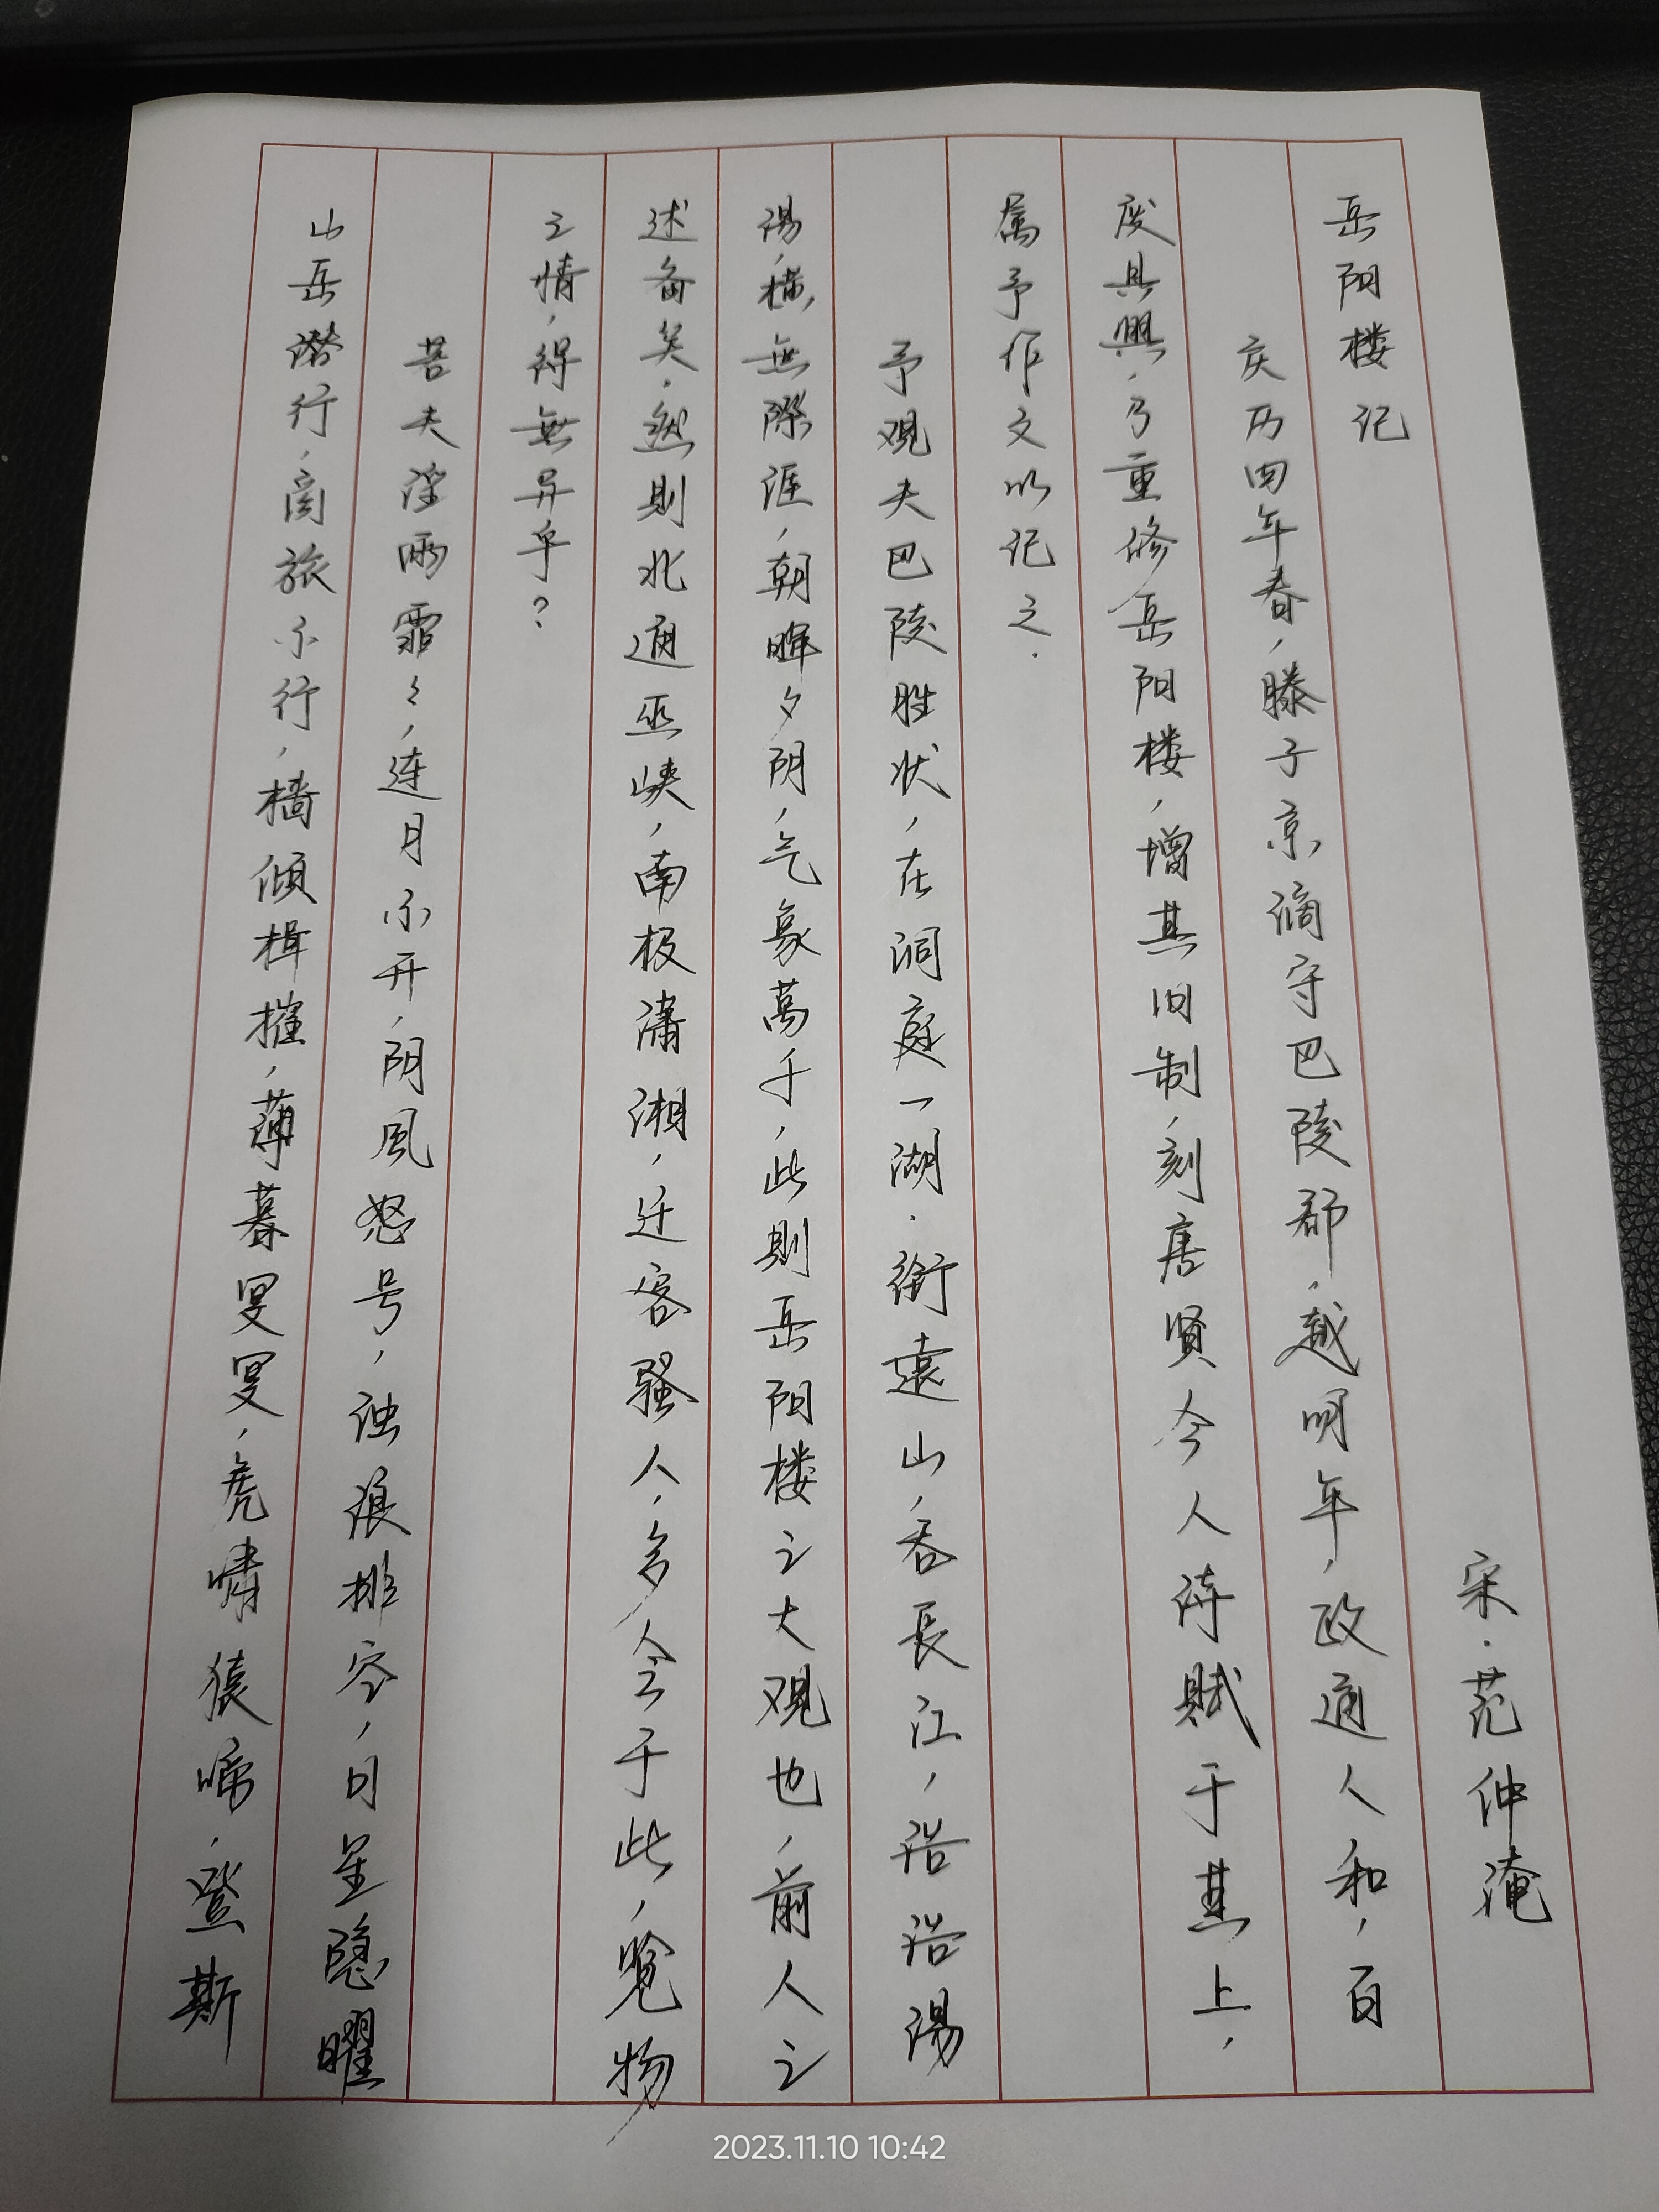 岳阳楼记
宋·范仲淹
庆历四年春，滕子京谪守巴陵郡，越明年，政通人和，百
废具興，乃重修岳阳楼，增其旧制，刻唐贤今人诗赋于其上，
属予作文以记之.
予观夫巴陵胜状，在洞庭一湖.衔遠山，吞長江，浩浩湯
湯，横，無際涯，朝晖夕阴，气象萬千，此則岳阳楼之大观也，前人之
述备矣.然則北通巫峡，南极潇湘，迁客骚人，多会于此，览物
之情，得無异乎？
若夫淫雨霏々，连月不开，阴風怒号，浊浪排空，日星隐曜
山岳潜行，商旅不行，樯倾楫摧，薄暮冥冥，虎啸猿啼，登斯
2023.11.10 10:42